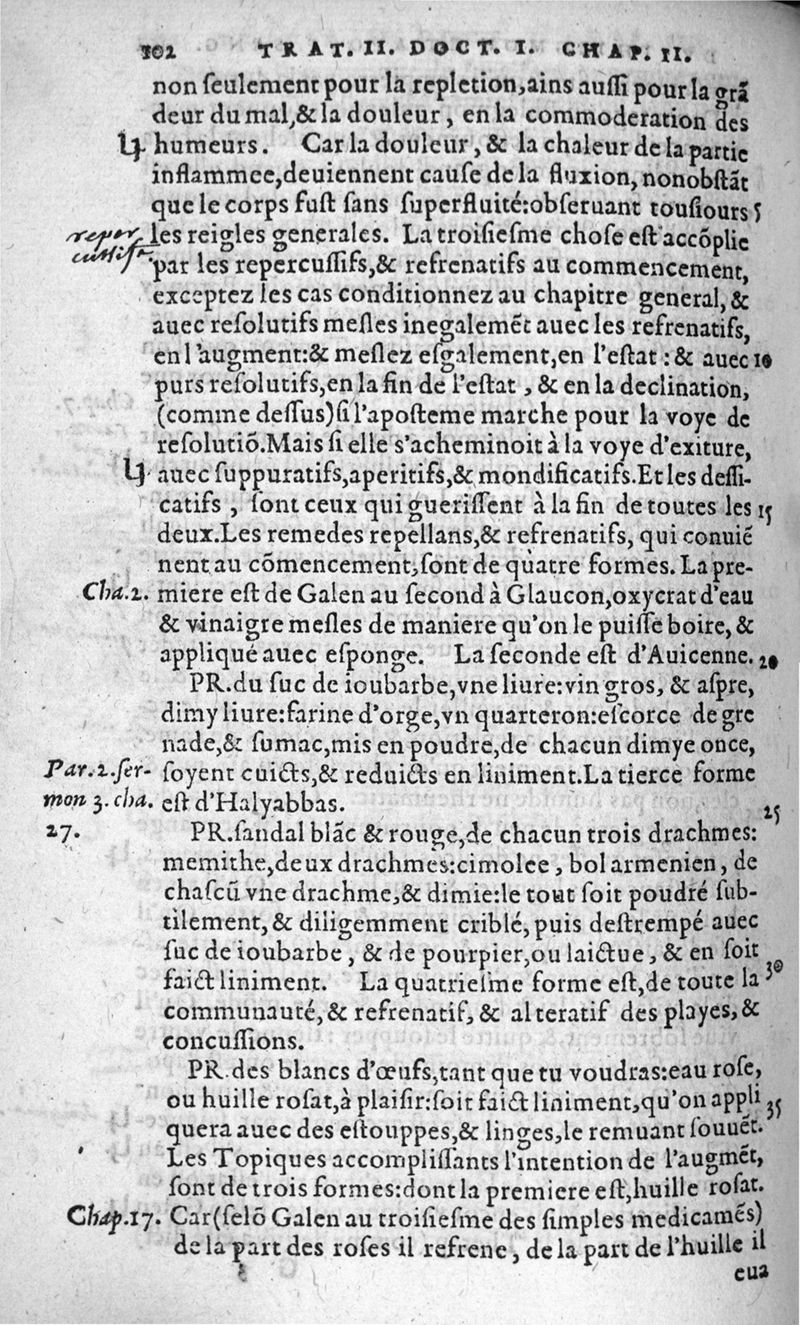 102 TRAT. II. DOCT. I. CHAP. II.
non ſeulement pour la repletion,ains auſſi pour la grã
deur du mal,&la douleur, en la commoderation des
humeurs. Car la douleur, & la chaleur de la partie
inflammee,deuiennent cauſe de la fluxion, nonobſtãt
que le corps fuſt ſans ſuperfluité:obſeruant touſiours 5
les reigles generales. La troiſieſme choſe eſt accõplie
par les repercuſſifs,& refrenatifs au commencement,
exceptez les cas conditionnez au chapitre general, &
auec reſolutifs meſles inegalemẽt auec les refrenatifs,
en l'augment:& meſlez eſgalement,en l'eſtat : & auec 10
purs reſolutifs,en la fin de l'eſtat, & en la declination,
(comme deſſus)ſi l'apoſteme marche pour la voye de
reſolutiõ.Mais ſi elle s'acheminoit à la voye d'exiture,
auec ſuppuratifs,aperitifs,& mondificatifs.Et les deſſi-
catifs, ſont ceux qui gueriſſent à la fin de toutes les 15
deux.Les remedes repellans,& refrenatifs, qui conuiẽ
nent au cõmencement,ſont de quatre formes. La pre-
Cha.2. miere eſt de Galen au ſecond à Glaucon,oxycrat d'eau
& vinaigre meſles de maniere qu'on le puiſſe boire, &
appliqué auec eſponge. La ſeconde eſt d'Auicenne. 20
PR.du ſuc de ioubarbe,vne liure:vin gros, & aſpre,
dimy liure:farine d'orge,vn quarteron:eſcorce de gre
nade,& ſumac,mis en poudre,de chacun dimye once,
Par.2.ſer- ſoyent cuicts,& reduicts en liniment.La tierce forme
mon 3. cha. eſt d'Halyabbas. 25
27. PR.ſandal blãc & rouge,de chacun trois drachmes:
memithe,deux drachmes:cimolee, bol armenien, de
chaſcũ vne drachme,& dimie:le tout ſoit poudré ſub-
tilement, & diligemment criblé, puis deſtrempé auec
ſuc de ioubarbe, & de pourpier,ou laictue, & en ſoit
faict liniment. La quatrieſme forme eſt,de toute la 30
communauté, & refrenatif, & alteratif des playes, &
concuſſions.
PR.des blancs d'œufs,tant que tu voudras:eau roſe,
ou huille roſat,à plaiſir:ſoit faict liniment,qu'on appli 35
quera auec des eſtouppes,& linges,le remuant ſouuẽt.
Les Topiques accompliſſants l'intention de l'augmẽt,
ſont de trois formes:dont la premiere eſt,huille roſat.
Chap.17. Car(ſelõ Galen au troiſieſme des ſimples medicamẽs)
de la part des roſes il refrene, de la part de l'huille il
eua